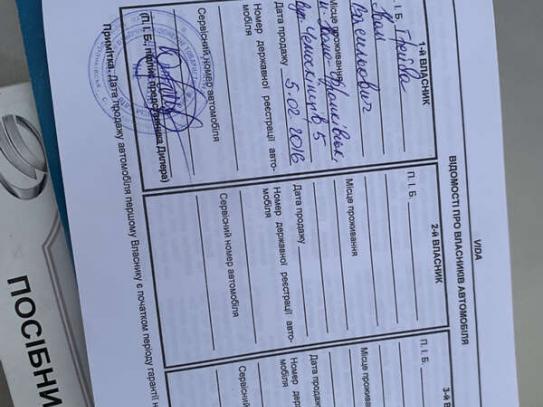 VIDA
ВІДОМОСТІ ПРО ВЛАСНИКІВ АВТОМОБІЛЯ
1-й ВЛАСНИК
І. Б.
Васильович
Місце проживання
5
Дата продажу 5.02 2016
Номер державної реєстрації авто-
мобіля
Сервісний номер автомобіля
(П. І. Б., підпис представника Дилера)
2-й ВЛАСНИК
П. І. Б.
Місце проживання
Дата продажу
Номер державної реєстрації авто-
мобіля
Сервісний номер автомобіля
3-й В
П. І. Б.
Місце прожива
Дата продажу
Номер держав
мобіля
Сервісний
Примітка. Дата продажу автомобіля першому Власнику є початком періоду гарантії н
ПОСІБНИ